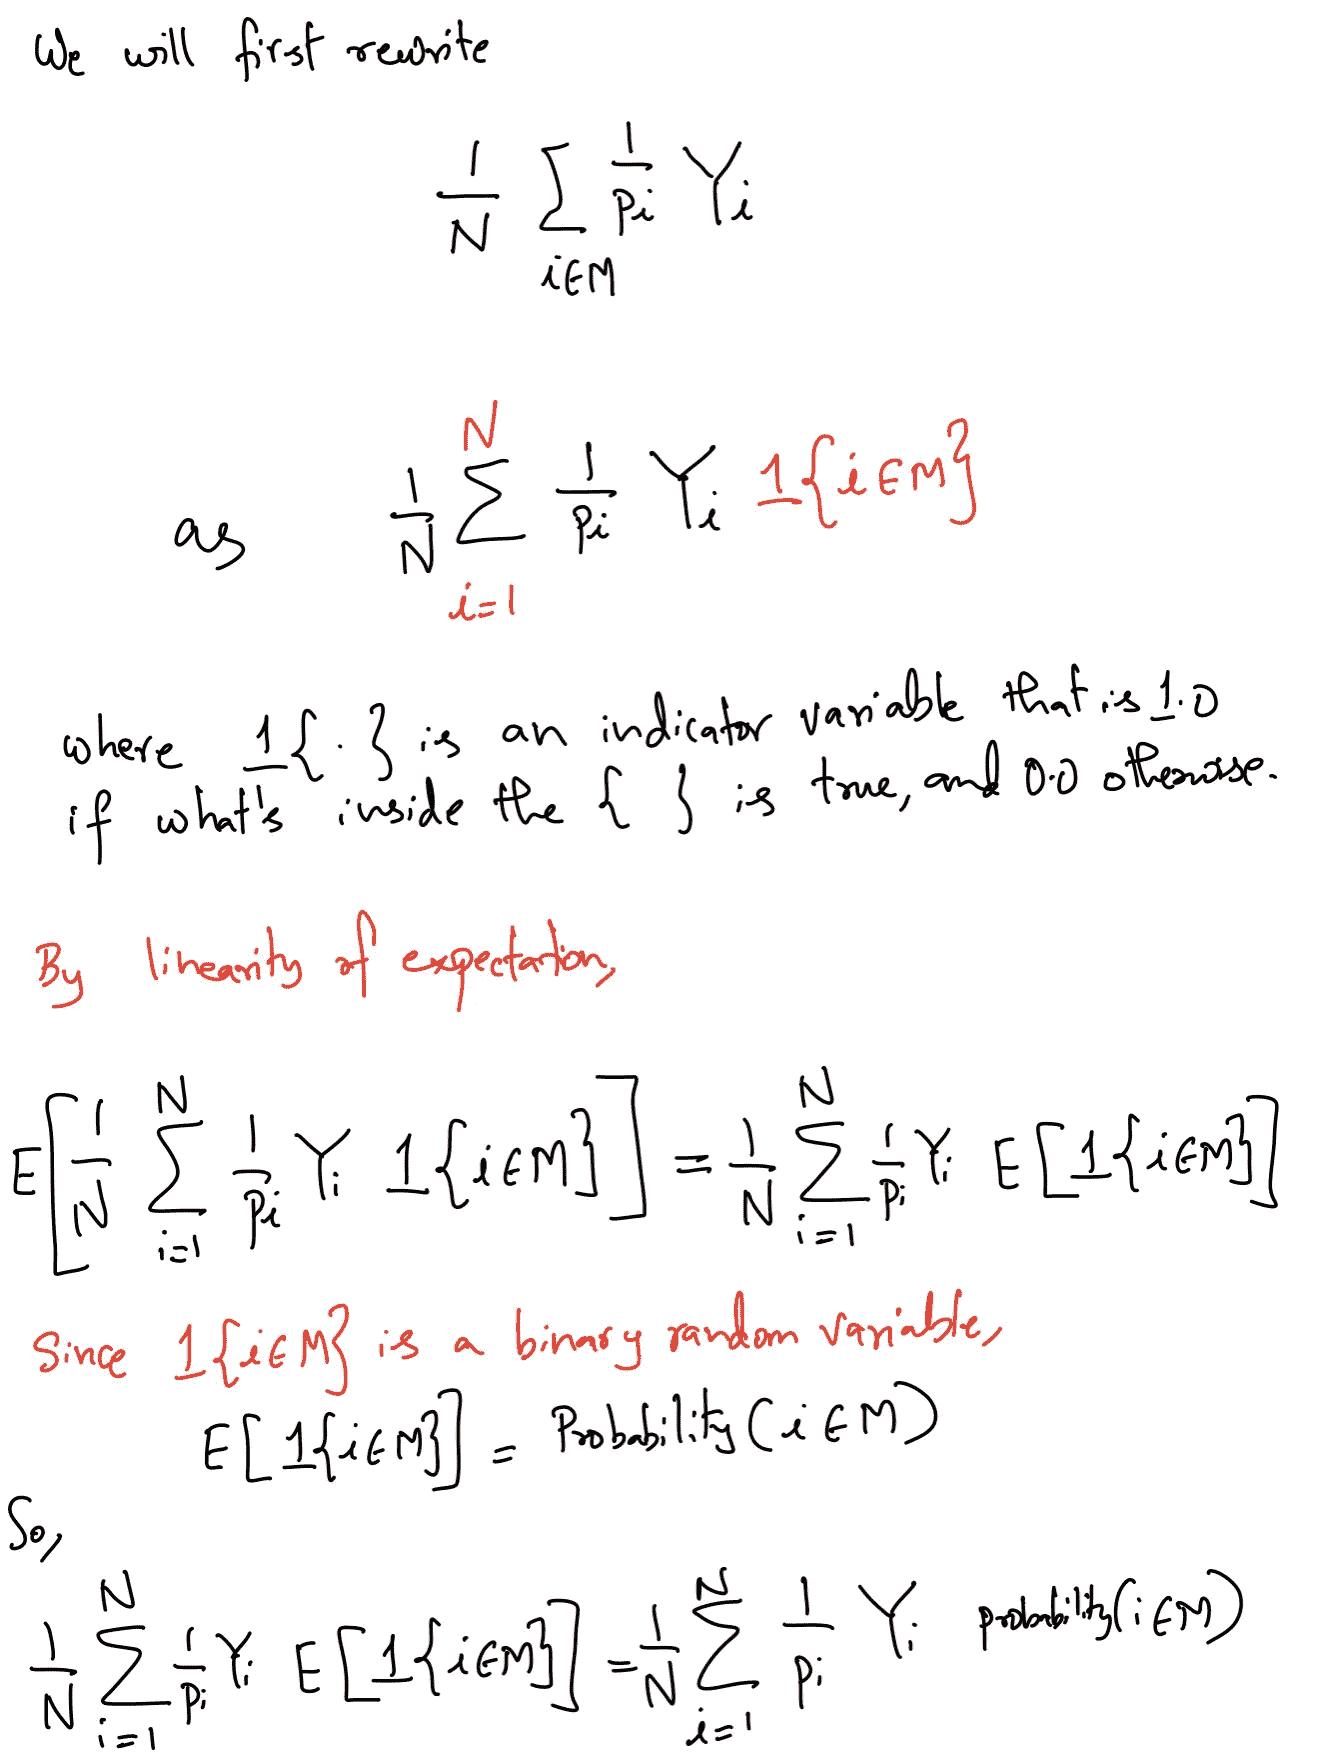 We will first rewrite
1/N ∑_{i∈M} 1/p_i Y_i
as 1/N ∑_{i=1}^{N} 1/p_i Y_i 1{i∈M}
where 1{·} is an indicator variable that is 1.0
if what's inside the { } is true, and 0.0 otherwise.
By linearity of expectation,
E[1/N ∑_{i=1}^{N} 1/p_i Y_i 1{i∈M}] = 1/N ∑_{i=1}^{N} 1/p_i Y_i E[1{i∈M}]
Since 1{i∈M} is a binary random variable,
E[1{i∈M}] = Probability(i∈M)
So,
1/N ∑_{i=1}^{N} 1/p_i Y_i E[1{i∈M}] = 1/N ∑_{i=1}^{N} 1/p_i Y_i probability(i∈M)